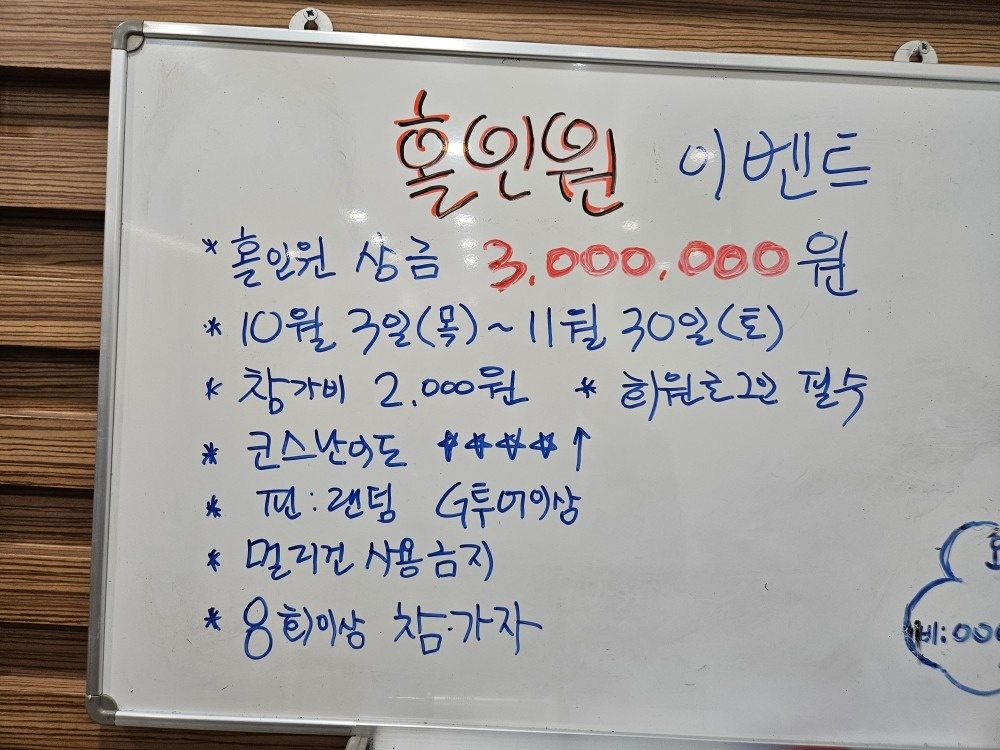 홀인원 이벤트
* 홀인원 상금 3.000.000원
* 10월 3일(목) ~ 11월 30일(토)
* 참가비 2.000원 * 회원로그인 필수
* 코스난이도 ★★★★↑
* 핀:랜덤 G투어이상
* 멀리건 사용금지
* 8회이상 참가자
비:000